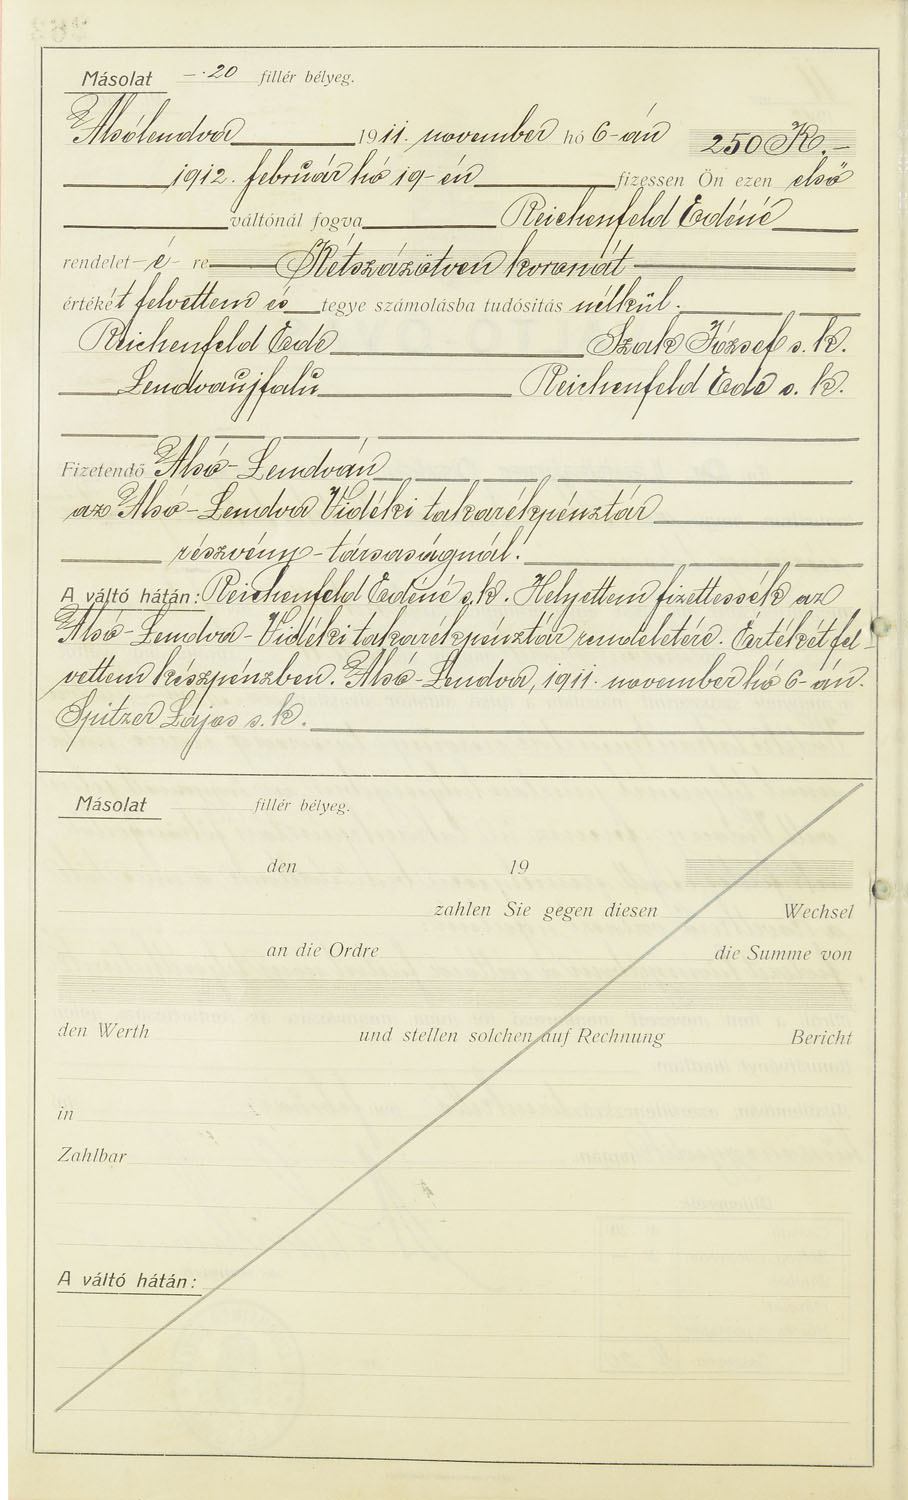 Másolat —·20 fillér bélyeg.
Alsólendva 1911. november hó 6-án 250 K.—
1912. február hó 19-én fizessen Ön ezen első
váltónál fogva Reichenfeld Edéné
rendelet-é- re Kétszázötven koronát
értékét felvettem és tegye számolásba tudósitás nélkül.
Reichenfeld Ede Szak József s. k.
Lendvaujfalu Reichenfeld Ede s. k.
Fizetendő Alsó-Lendván
az Alsó-Lendva Vidéki takarékpénztár
részvény-társaságnál.
A váltó hátán: Reichenfeld Edéné s.k. Helyettem fizettessék az
Alsó-Lendva-Vidéki takarékpénztár rendeletére. Értékét fel-
vettem készpénzben. Alsó-Lendva, 1911. november hó 6-án.
Spitzer Lajos s. k.
Másolat fillér bélyeg.
den 19
zahlen Sie gegen diesen Wechsel
an die Ordre die Summe von
den Werth und stellen solchen auf Rechnung Bericht
in
Zahlbar
A váltó hátán: